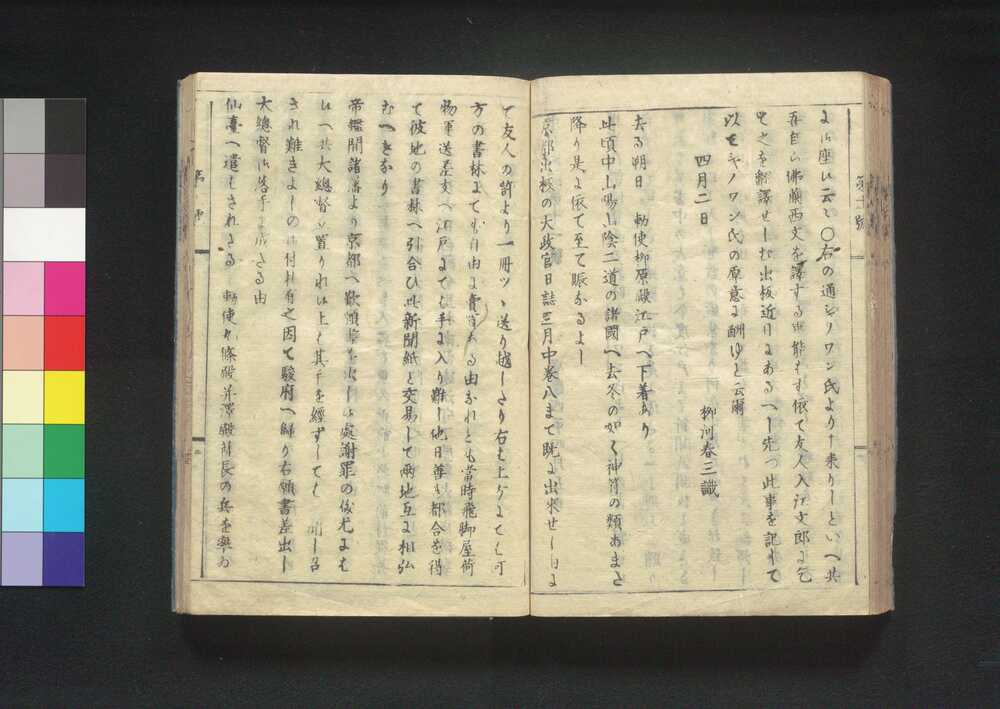 に御座候云々〇右の通シノワン氏より申来りしといへ共
予自ら佛蘭西文を譯する事能はす依て友人入江文郎に乞
ひ之を飜譯せしむ出板近日にあるへし先つ此事を記して
以てシノワン氏の原意に酬ゆと云爾
四月二日 柳河春三識
去る朔日 勅使柳原殿江戸へ下着あり
此頃中山陽山陰二道の諸國へ去冬の如く神符の類あまた
降り是に依て至て賑かるよし
京都出板の大政官日誌三月中巻八まて既に出来せし由に
て友人の許より一冊ツヽ送り越したり右は上方にては何
方の書林にても自由に賣買する由なれとも當時飛脚屋荷
物運送差支へ江戸まては手に入り難し他日善き都合を得
て彼地の書林へ引合ひ此新聞紙と交易して両地互に相弘
むへきなり
帝鑑間諸藩より京都へ歎願書を出し 處謝罪の儀尤には
候へ共大総督 置かれ候上は其手を經すしては 聞し召
され難きよしの御付札有之因て駿府へ歸り右願書差出し
大總督御落手に成たる由
仙臺へ遣はされたる 勅使九條殿并澤殿薩長の兵を率ゐ